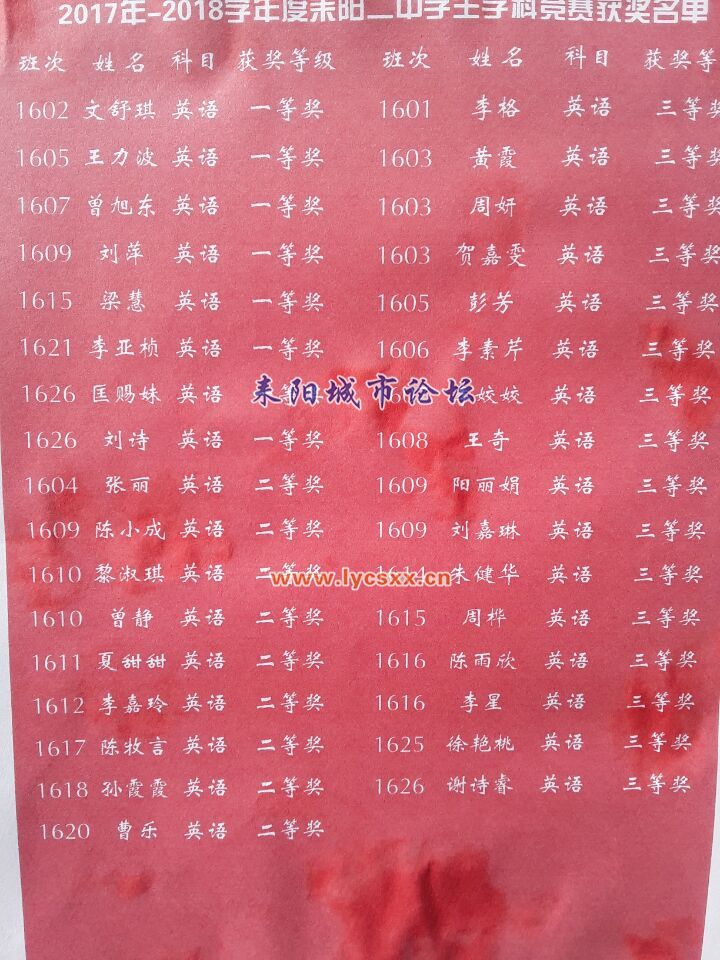 2017年-2018学年度耒阳二中学生学科竞赛获奖名单
班次 姓名 科目 获奖等级 班次 姓名 科目 获奖等
1602 文舒琪 英语 一等奖 1601 李格 英语 三等奖
1605 王力波 英语 一等奖 1603 黄霞 英语 三等奖
1607 曾旭东 英语 一等奖 1603 周妍 英语 三等奖
1609 刘萍 英语 一等奖 1603 贺嘉雯 英语 三等奖
1615 梁慧 英语 一等奖 1605 彭芳 英语 三等奖
1621 李亚桢 英语 一等奖 1606 李素芹 英语 三等奖
1626 匡赐妹 英语 一等奖 姣姣 英语 三等奖
耒阳城市论坛
1626 刘诗 英语 一等奖 1608 王奇 英语 三等奖
1604 张丽 英语 二等奖 1609 阳丽娟 英语 三等奖
1609 陈小成 英语 二等奖 1609 刘嘉琳 英语 三等奖
1610 黎淑琪 英语 二等奖 朱健华 英语 三等奖
www.lycsxx.cn
1610 曾静 英语 二等奖 1615 周桦 英语 三等奖
1611 夏甜甜 英语 二等奖 1616 陈雨欣 英语 三等奖
1612 李嘉玲 英语 二等奖 1616 李星 英语 三等奖
1617 陈牧言 英语 二等奖 1625 徐艳桃 英语 三等奖
1618 孙霞霞 英语 二等奖 1626 谢诗睿 英语 三等奖
1620 曹乐 英语 二等奖